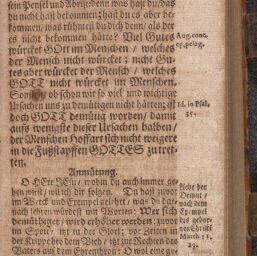 sein Pensel und Abriß: denn was hast du / das
du nicht hast bekommen? hast du es aber be-
kommen / was rühmest du dich denn / als der
es nicht bekommen hätte? Viel Gutes
würcket GOtt im Menschen / welches
der Mensch nicht würcket: nicht Gu-
tes aber würcket der Mensch / welches
GOTT nicht würcket im Menschen.
Sonsten ob schon wir so viel und wichtige
Ursachen uns zu demütigen nicht hätten; ist
doch GOTT demütig worden / damit
aufs wenigste dieser Ursachen halben /
der Menschen Hoffart sich nicht weigere
in die Fußstapffen GOTTES zu tret-
ten.
Anmütung.
O HErr JEsu / wohin du auch immer ge-
hen wirst / will ich dir folgen. Du hast zuvor
im Werck und Exempel gelehrt / was du dar-
nach lehren würdest mit Worten: Wer sich
demütiget / wird erhöhet werden: zuvor
im Spott / itzt in der Glori; vor Zeiten in
der Krippe bey dem Vieh / itzt zur Rechten des
Vaters auf dem Ehrenthron: O wol eine gu-
Aug. cont.
ep. pelag.
Id. in Psal.
35.
Liebe der
Demut /
nach dem
Exempel
des
Christi
Matth. 11.
29.